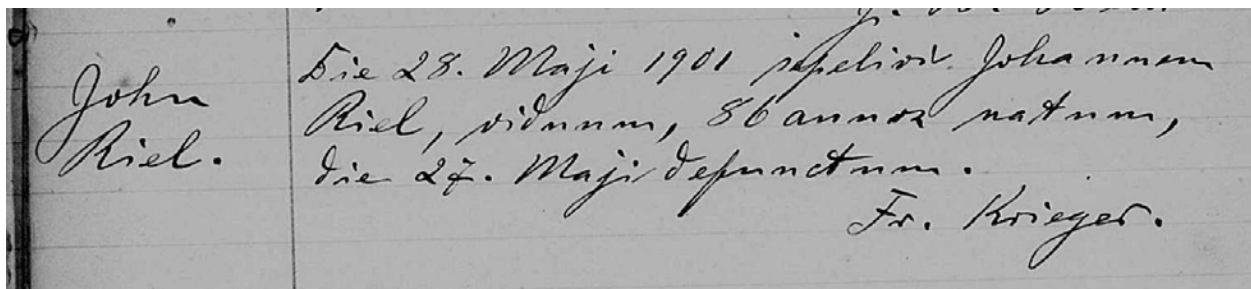 John
Riel.
Die 28. Maji 1901 sepelivi Johannem
Riel, viduum, 86 annos natum,
die 27. Maji defunctum.
Fr. Krieger.